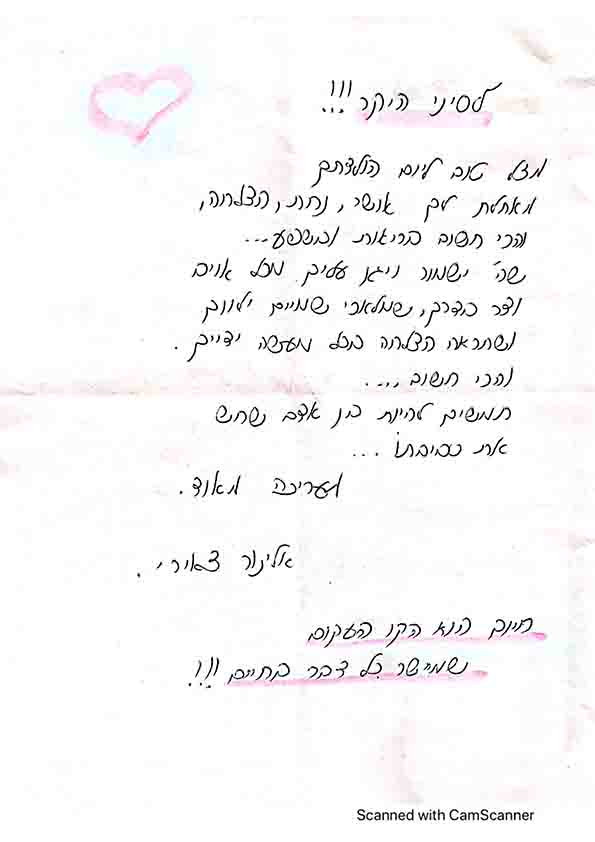 לסיני היקר!!!
מזל טוב ליום הולדתך
מאחלת לך אושר, נחת, הצלחה,
והכי חשוב בריאות ושפע...
שה' ישמור ויגן עליך מכל אויב
וצר בדרך, שמלאכי שמיים ילוום
ושתראה הצלחה בכל מעשה ידייך.
והכי חשוב....
תמשיך להיות בין אדם שחש
את סביבתו...
מעריכה מאוד.
אלינור צאירי.
חיוך הוא הקו העקום
שמיישר כל דבר בחיים!!!
Scanned with CamScanner